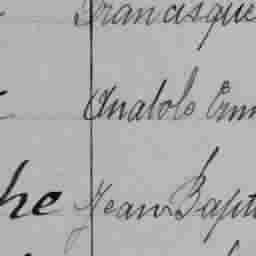 Francisque
Anatole Emm
he Jean Bapt